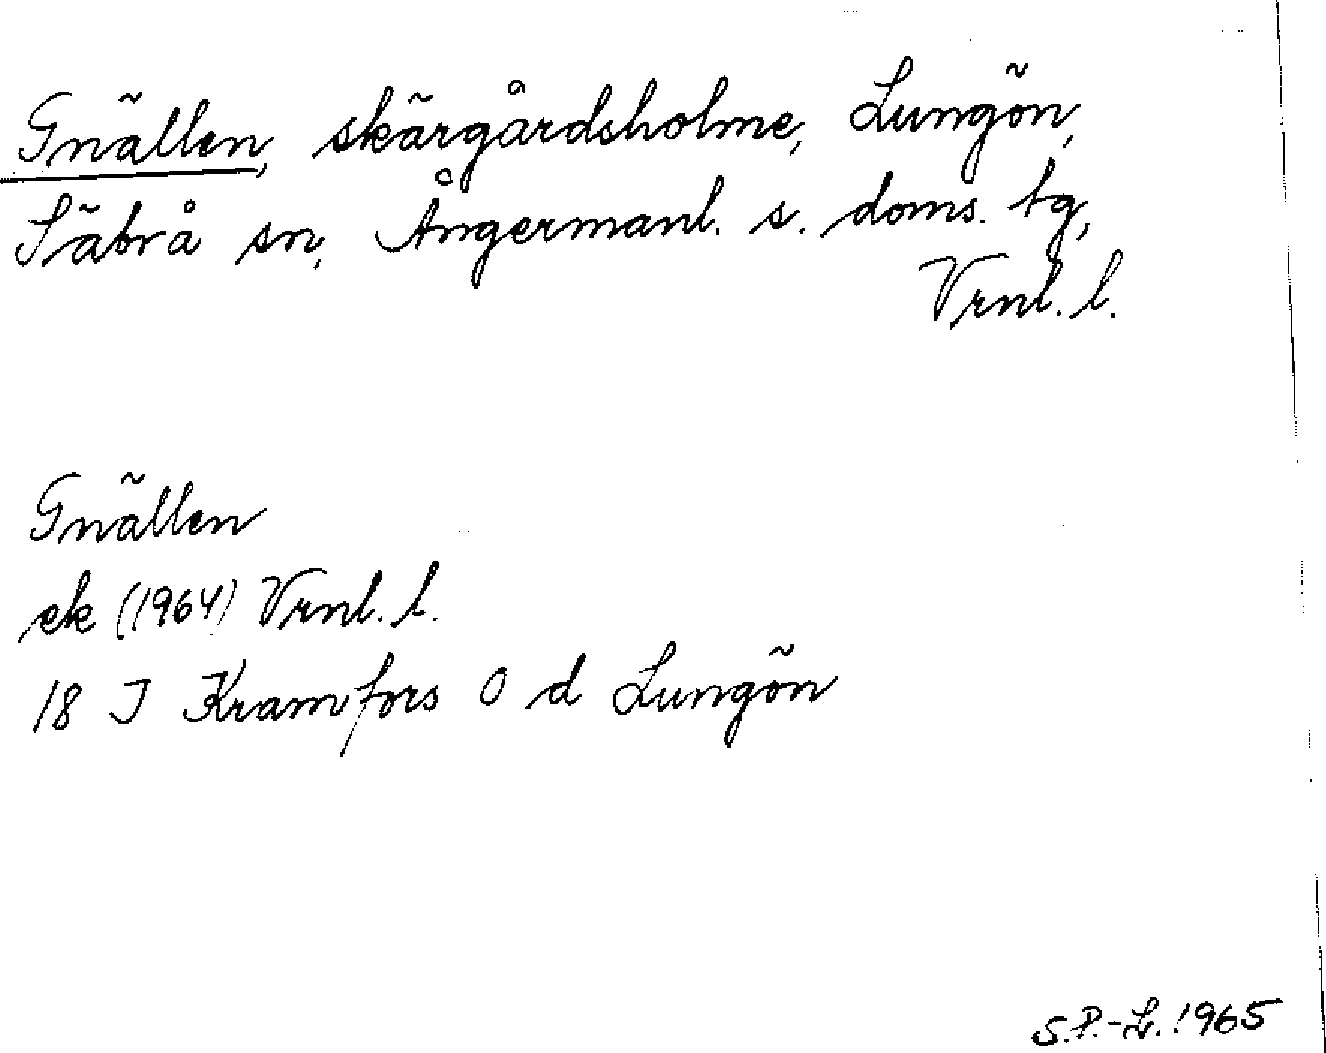 Gnällen, skärgårdsholme, Lungön,
Säbrå sn, Ångermanl. s. doms. tg,
Vrnl. l.
Gnällen
ek (1964) Vrnl. l.
18 J Kramfors O d Lungön
S.P.-L. 1965